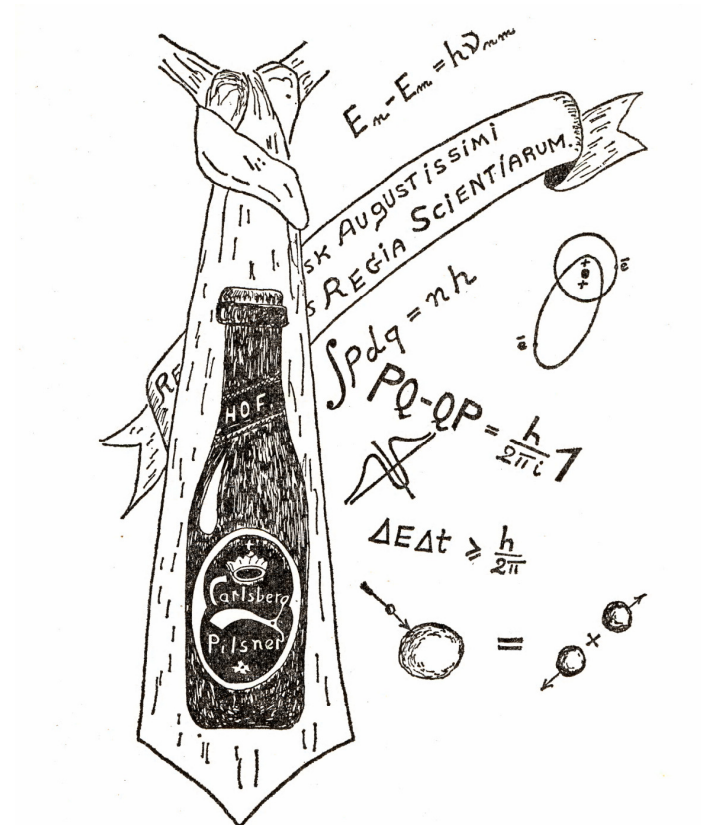 Eₙ-Eₘ=hνₙₘ
SK AUGUSTISSIMI
S REGIA SCIENTIARUM.
RE
ē
ē
∫pdq = nh
PQ-QP = h/2πi 1
HOF.
ΔEΔt ≥ h/2π
Carlsberg
Pilsner
=